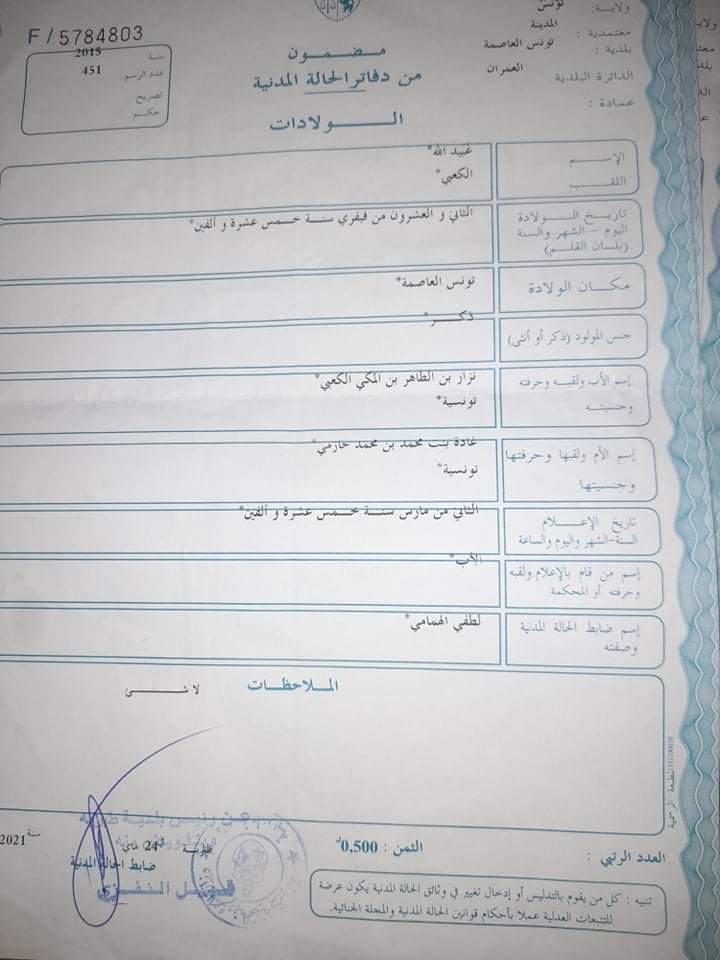 F / 5784803
ولاية: تونس
معتمدية : المدينة
بلدية : تونس العاصمة
الدائرة البلدية : العمران
عمادة :
سنة 2015
عدد الرسم 451
تصريح
حكم
مضمون
من دفاتر الحالة المدنية
الولادات
الإسم
عبيد الله*
اللقب
الكعبي*
تاريخ الولادة
اليوم - الشهر والسنة
(بلسان القلم)
الثاني و العشرون من فيفري سنة خمس عشرة و ألفين*
مكان الولادة
تونس العاصمة*
جنس المولود (ذكر أو أنثى)
ذكر*
إسم الأب ولقبه وحرفته
وجنسيته
نزار بن الطاهر بن المكي الكعبي*
تونسية*
إسم الأم ولقبها وحرفتها
وجنسيتها
غادة بنت محمد بن محمد حازمي*
تونسية*
تاريخ الإعلام
السنة-الشهر واليوم والساعة
الثاني من مارس سنة خمس عشرة و ألفين*
إسم من قام بالإعلام ولقبه
وحرفته أو المحكمة
الأب*
إسم ضابط الحالة المدنية
وصفته
لطفي الهمامي*
الملاحظات
لا شئ
المطبعة الرسمية
عن رئيس بلدية
24
سنة 2021
ضابط الحالة المدنية
العدد الرتبي :
الثمن : 0,500د
تنبيه : كل من يقوم بالتدليس أو إدخال تغيير في وثائق الحالة المدنية يكون عرضة
للتتبعات العدلية عملا بأحكام قوانين الحالة المدنية والمجلة الجنائية.